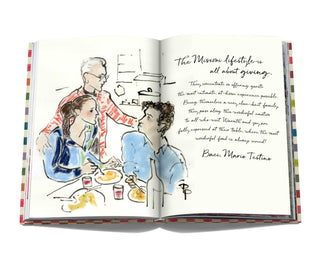 The Missoni lifestyle is
all about giving.
They concentrate on offering guests
the most intimate at-home experience possible.
Being themselves a very close-knit family,
they pass along this wonderful notion
to all who visit. Warmth and joy are
fully expressed at their table, where the most
wonderful food is always served!
Baci, Mario Testino